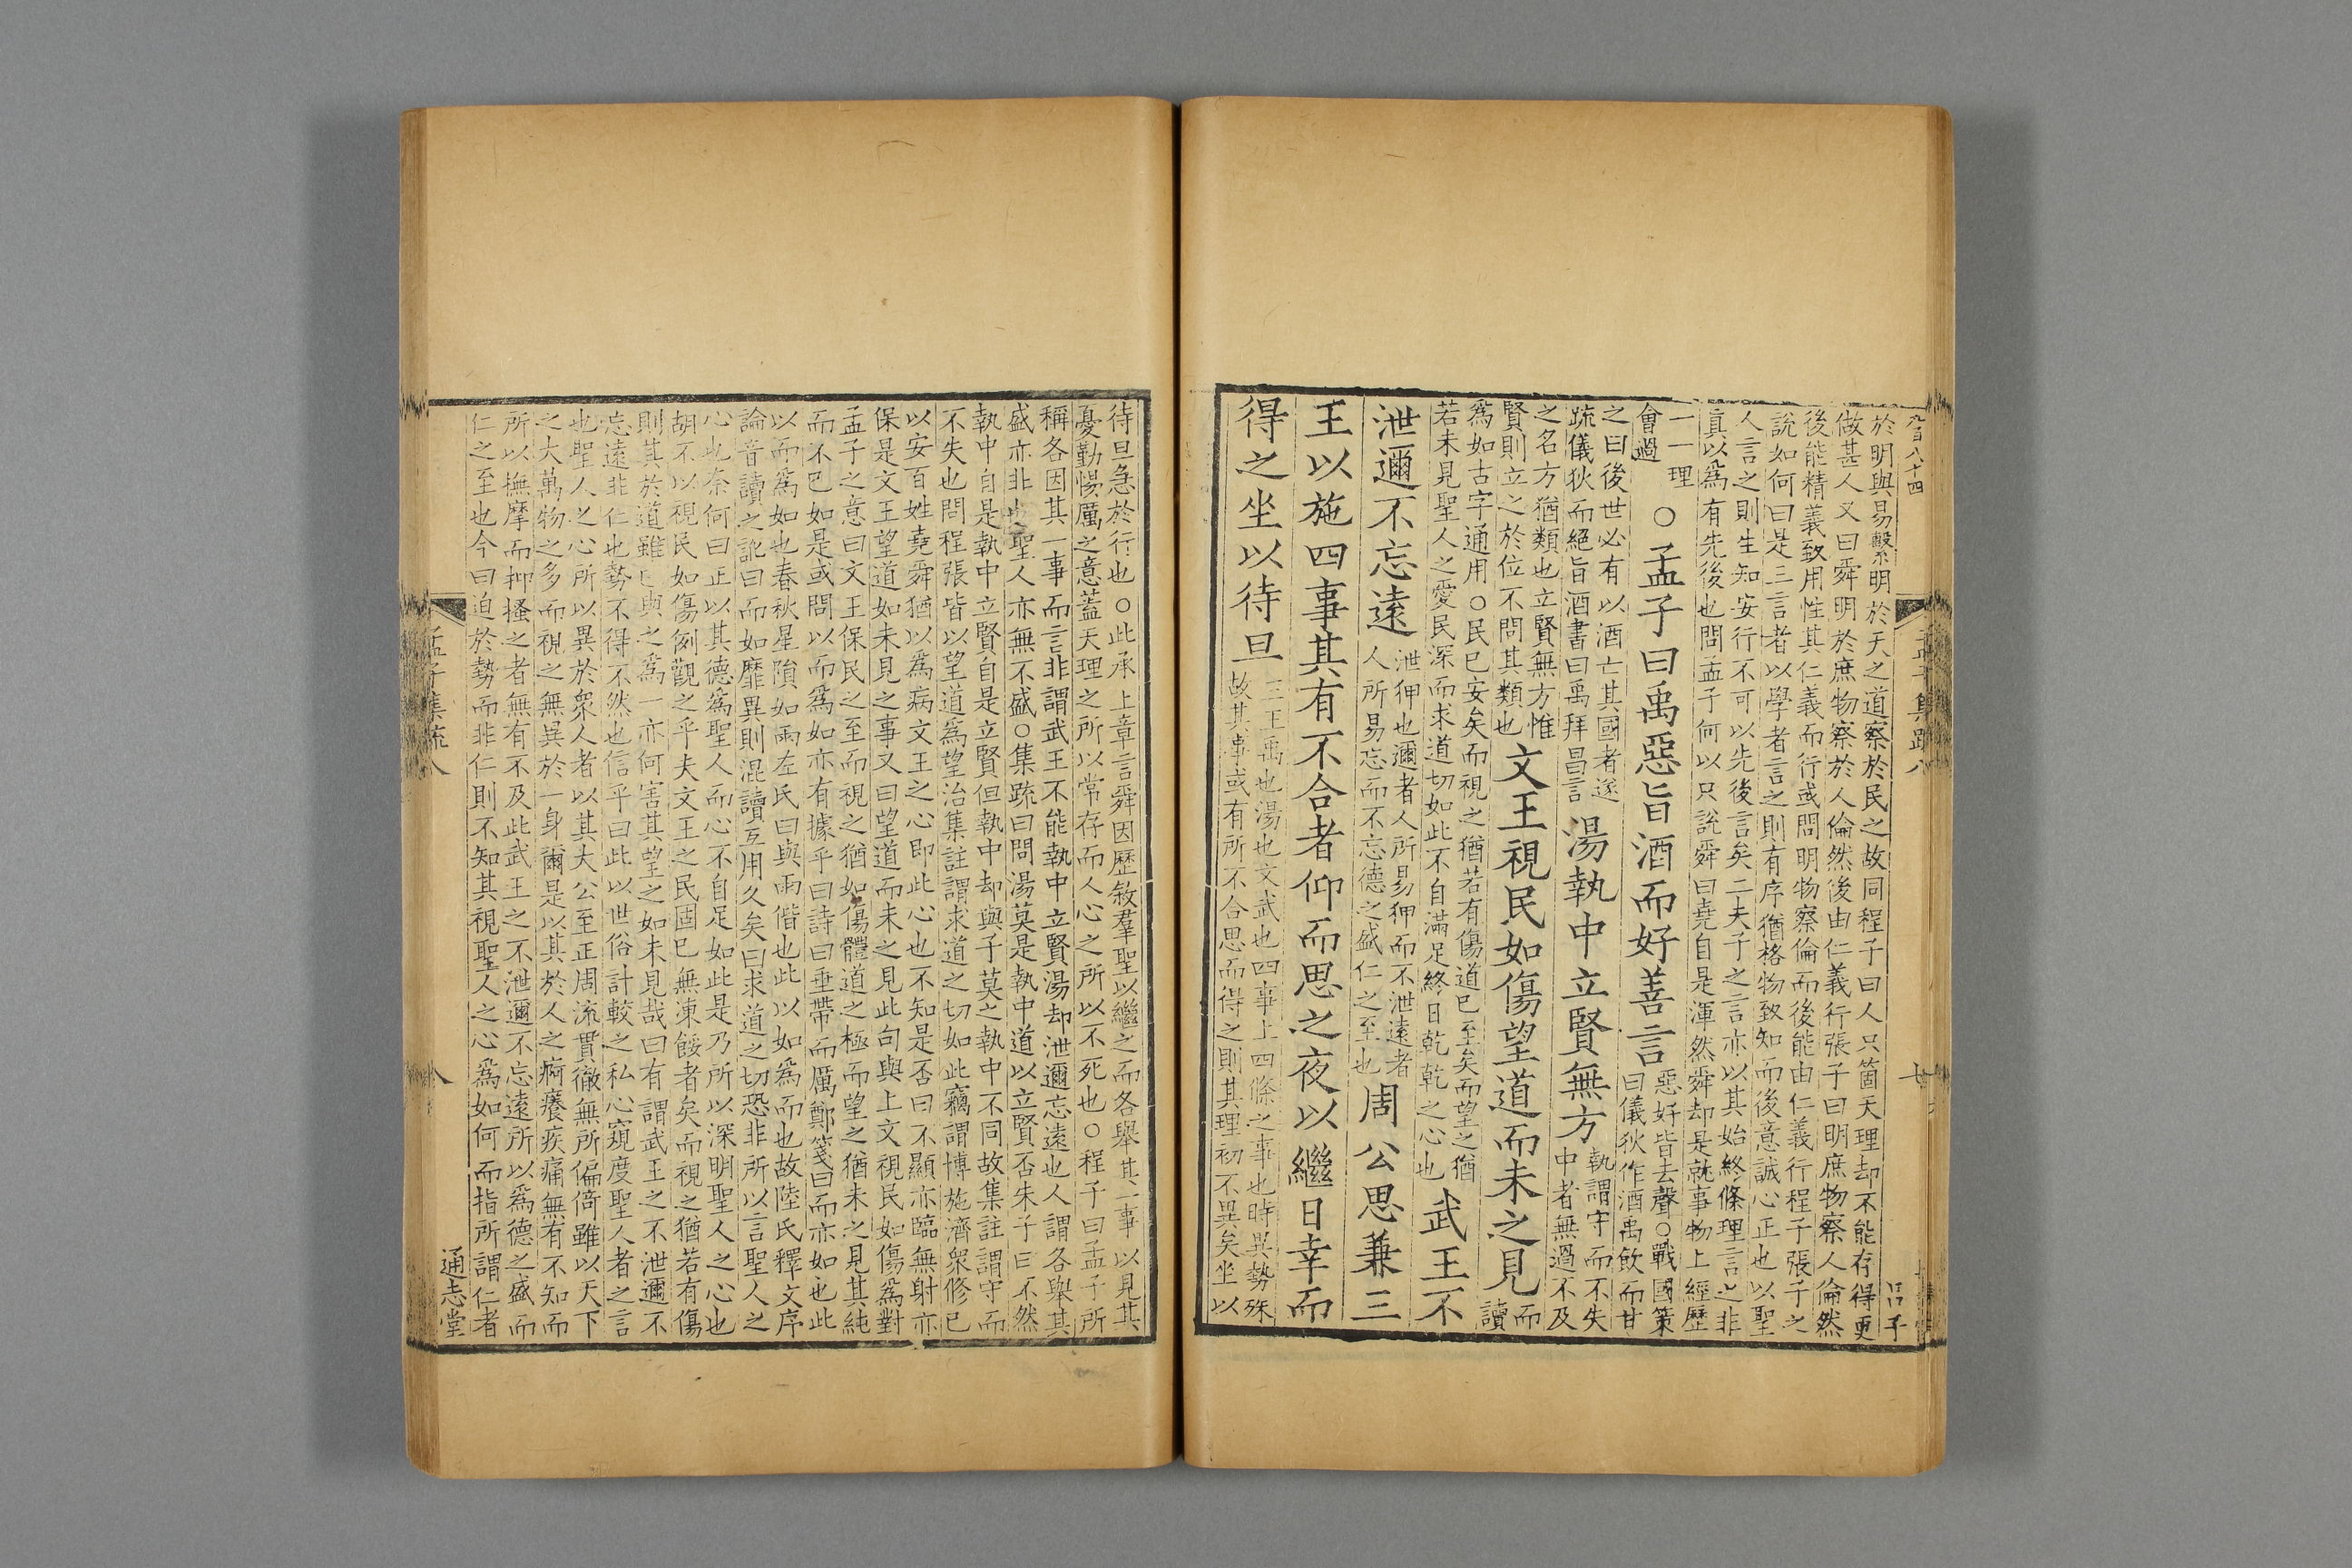 於明與易繫明於天之道察於民之故同程子曰人只箇天理却不能存得更
做甚人又曰舜明於庶物察於人倫然後由仁義行張子曰明庶物察人倫然
後能精義致用性其仁義而行或問明物察倫而後能由仁義行程子張子之
說如何曰是三言者以學者言之則有序猶格物致知而後意誠心正也以聖
人言之則生知安行不可以先後言矣二夫子之言亦以其始終條理言之非
真以爲有先後也問孟子何以只說舜曰堯自是渾然舜却是就事物上經歷
一一理
會過
○孟子曰禹惡旨酒而好善言
惡好皆去聲○戰國策
曰儀狄作酒禹飲而甘
之曰後世必有以酒亡其國者遂
疏儀狄而絕旨酒書曰禹拜昌言
湯執中立賢無方
執謂守而不失
中者無過不及
之名方猶類也立賢無方惟
賢則立之於位不問其類也
文王視民如傷望道而未之見
而
讀
爲如古字通用○民已安矣而視之猶若有傷道已至矣而望之猶
若未見聖人之愛民深而求道切如此不自滿足終日乾乾之心也
武王不
泄邇不忘遠
泄狎也邇者人所易狎而不泄遠者
人所易忘而不忘德之盛仁之至也
周公思兼三
王以施四事其有不合者仰而思之夜以繼日幸而
得之坐以待旦
三王禹也湯也文武也四事上四條之事也時異勢殊
故其事或有所不合思而得之則其理初不異矣坐以
待旦急於行也○此承上章言舜因歷敘羣聖以繼之而各舉其一事以見其
憂勤惕厲之意蓋天理之所以常存而人心之所以不死也○程子曰孟子所
稱各因其一事而言非謂武王不能執中立賢湯却泄邇忘遠也人謂各舉其
盛亦非也聖人亦無不盛○集疏曰問湯莫是執中道以立賢否朱子曰不然
執中自是執中立賢自是立賢但執中却與子莫之執中不同故集註謂守而
不失也問程張皆以望道爲望治集註謂求道之切如此竊謂博施濟衆修已
以安百姓堯舜猶以爲病文王之心即此心也不知是否曰不顯亦臨無射亦
保是文王望道如未見之事又曰望道而未之見此句與上文視民如傷爲對
孟子之意曰文王保民之至而視之猶如傷體道之極而望之猶未之見其純
而不已如是或問以而爲如亦有據乎曰詩曰垂帶而厲鄭箋曰而亦如也此
以而爲如也春秋星隕如雨左氏曰與雨偕也此以如爲而也故陸氏釋文序
論音讀之訛曰而如靡異則混讀互用久矣曰求道之切恐非所以言聖人之
心也奈何曰正以其德爲聖人而心不自足如此是乃所以深明聖人之心也
胡不以視民如傷例觀之乎夫文王之民固已無凍餒者矣而視之猶若有傷
則其於道雖已與之爲一亦何害其望之如未見哉曰有謂武王之不泄邇不
忘遠非仁也勢不得不然也信乎曰此以世俗計較之私心窺度聖人者之言
也聖人之心所以異於衆人者以其大公至正周流貫徹無所偏倚雖以天下
之大萬物之多而視之無異於一身爾是以其於人之痾癢疾痛無有不知而
所以撫摩而抑搔之者無有不及此武王之不泄邇不忘遠所以爲德之盛而
仁之至也今曰迫於勢而非仁則不知其視聖人之心爲如何而指所謂仁者
孟子集疏八
八
通志堂